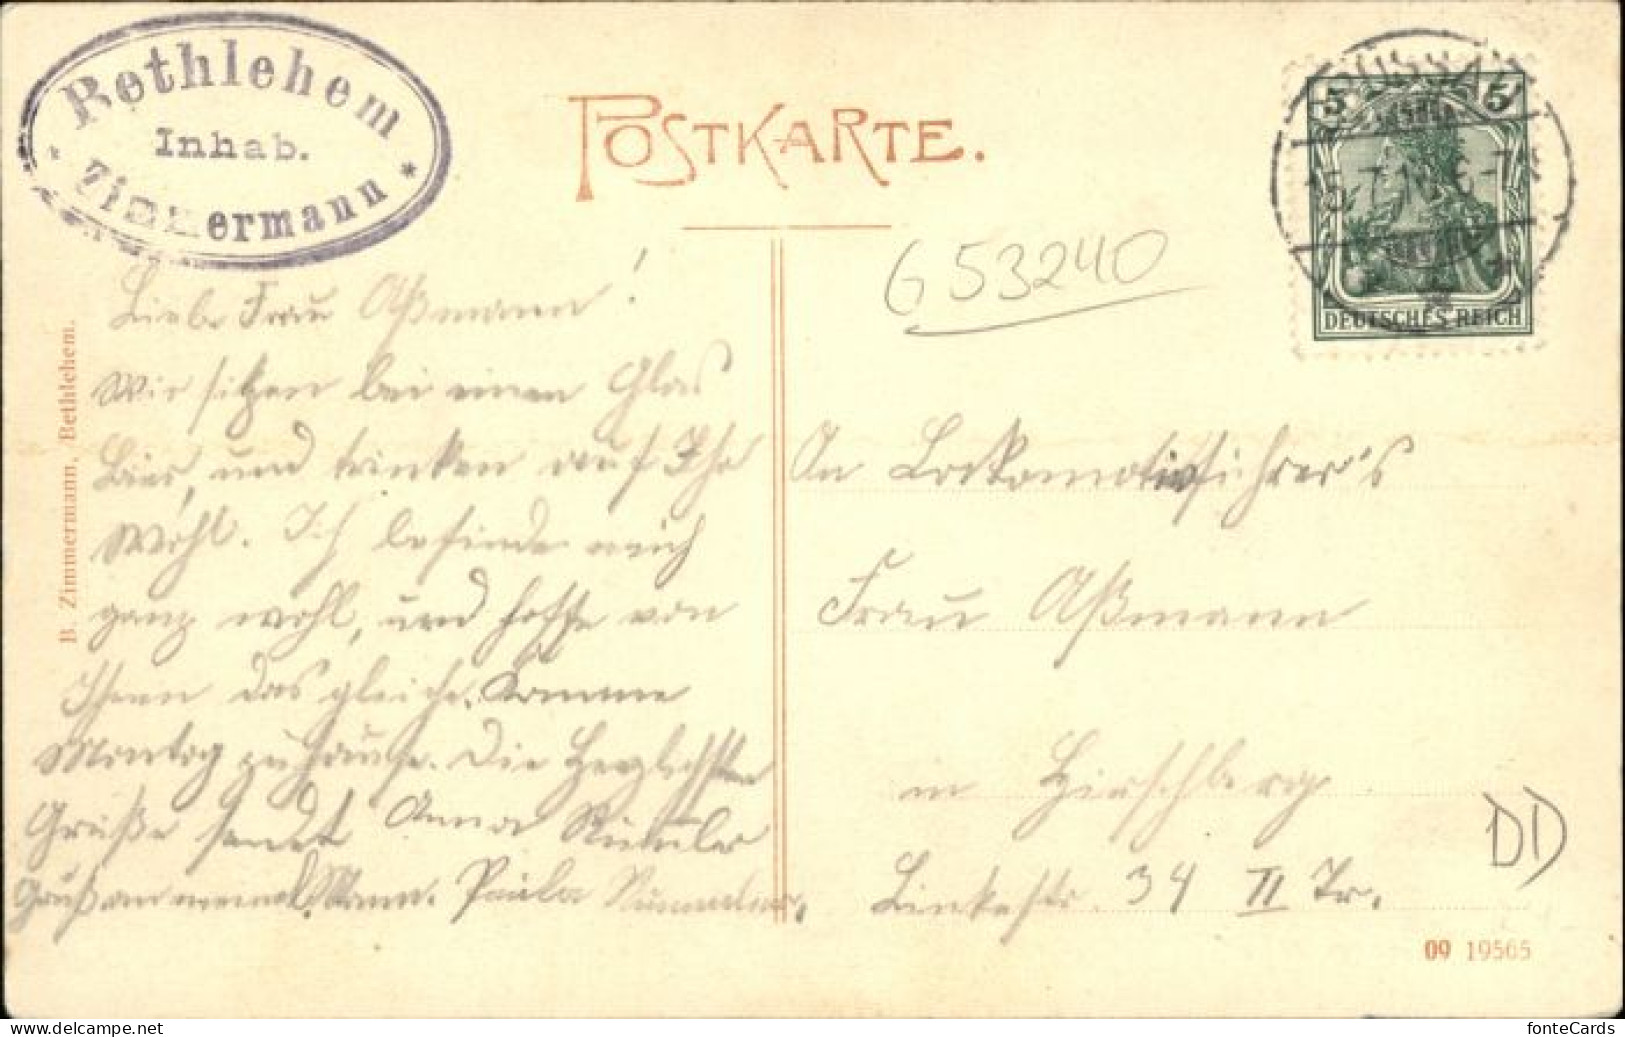 Bethlehem
Inhab.
* Zimmermann *
POSTKARTE.
5 5
DEUTSCHES REICH
G 53240
B. Zimmermann, Bethlehem.
Liebe Frau Aßmann!
Wir sitzen bei einen Glas
Bier, und trinken auf Ihr
Wohl. Ich befinde mich
ganz wohl, und hoffe von
Ihnen das gleiche. Komme
Montag zu Hause. Die Herzlichsten
Grüße sendet Anna
Gruß an meinen Mann. Paula
An Lockomotivführer's
Frau Aßmann
in Hirschberg
Linkestr. 34 II Tr.
DD
09 19565
fonteCards
www.delcampe.net